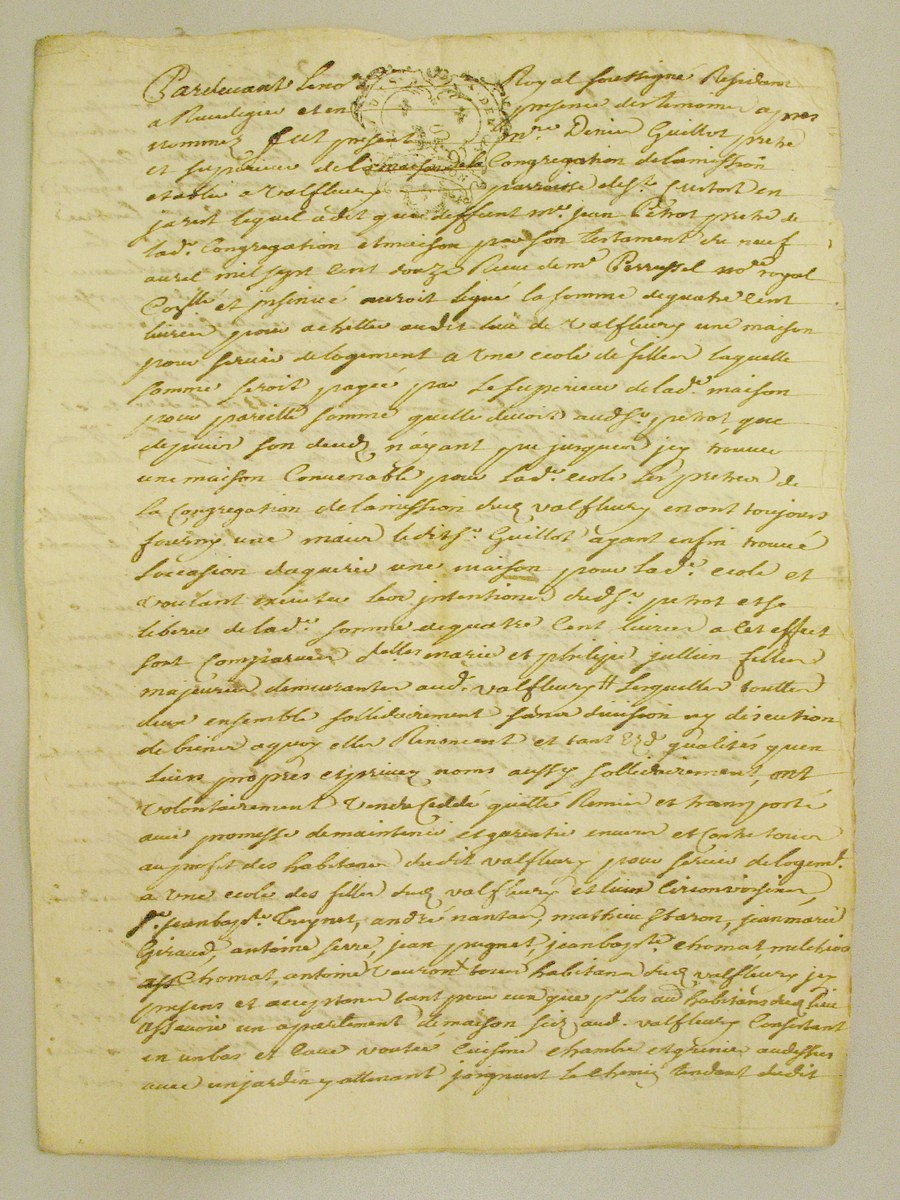 Pardevant le no Royal soussigné Residant
a Rivedegier et en presence des temoins apres
nommez fut present mre. Denis Guillot pretre
et superieur de la maison de la Congregation de la mission
etablie a Valfleury parroisse de st. Curtost en
jarest lequel a dit que deffunt mre. jean Petrot pretre de
lade. Congregation et maison par son testament du neuf
avril mil sept cent douze Receu de me. Perrussel nore. royal
et insinué auroit legué la somme de quatre cent
livres pour achetter audit lieu de Valfleury une maison
pour servir de logement a une ecole de filles laquelle
somme seroit payée par le superieur de lade. maison
pour pareille somme quelle devoit audsr. petrot que
depuis son deces nayant peu jusques jcy trouver
une maison Convenable pour lade. ecole les pretres de
la Congregation de la mission dud. valfleury en ont toujours
fourny une mais ledit sr. Guillot ayant enfin trouvé
loccasion daquerir une maison pour lade. ecole et
voulant executer les jntentions dudsr. petrot et se
liberer de lade. somme de quatre cent livres a cet effect
sont comparues delles marie et philipe jullien filles
majeures demeurantes aud. valfleury lesquelles toutes
deux ensemble sollidairement sans division ny discution
de biens a quoy elles Renoncent et tant esd. qualités quen
leurs propres et privez noms aussy sollidairement, ont
volontairement Vendu Ceddé quitté Remis et transporté
avec promesse de maintenir et garentir envers et contre tous
au profit des habitans dudit valfleury pour servir de logemt.
a une ecole des filles dud. valfleury et lieux circonvoisins
sr. jean bapte. Treynet, andré nantas, mathieu staron, jean marie
Giraud, antoine serre, jean pugnet, jean bapte. thomas, melchior
Thomas, antoine Vauron tous habitans dud. valfleury jcy
presens et acceptans tant pour eux que pr. les au. habitans dud. lieu
assavoir un apartement de maison sizé aud. valfleury Consistant
en un bas et cave voutée cuisine chambre et grenier au dessus
avec un jardin y attenant joignant le chemin tendant dudit